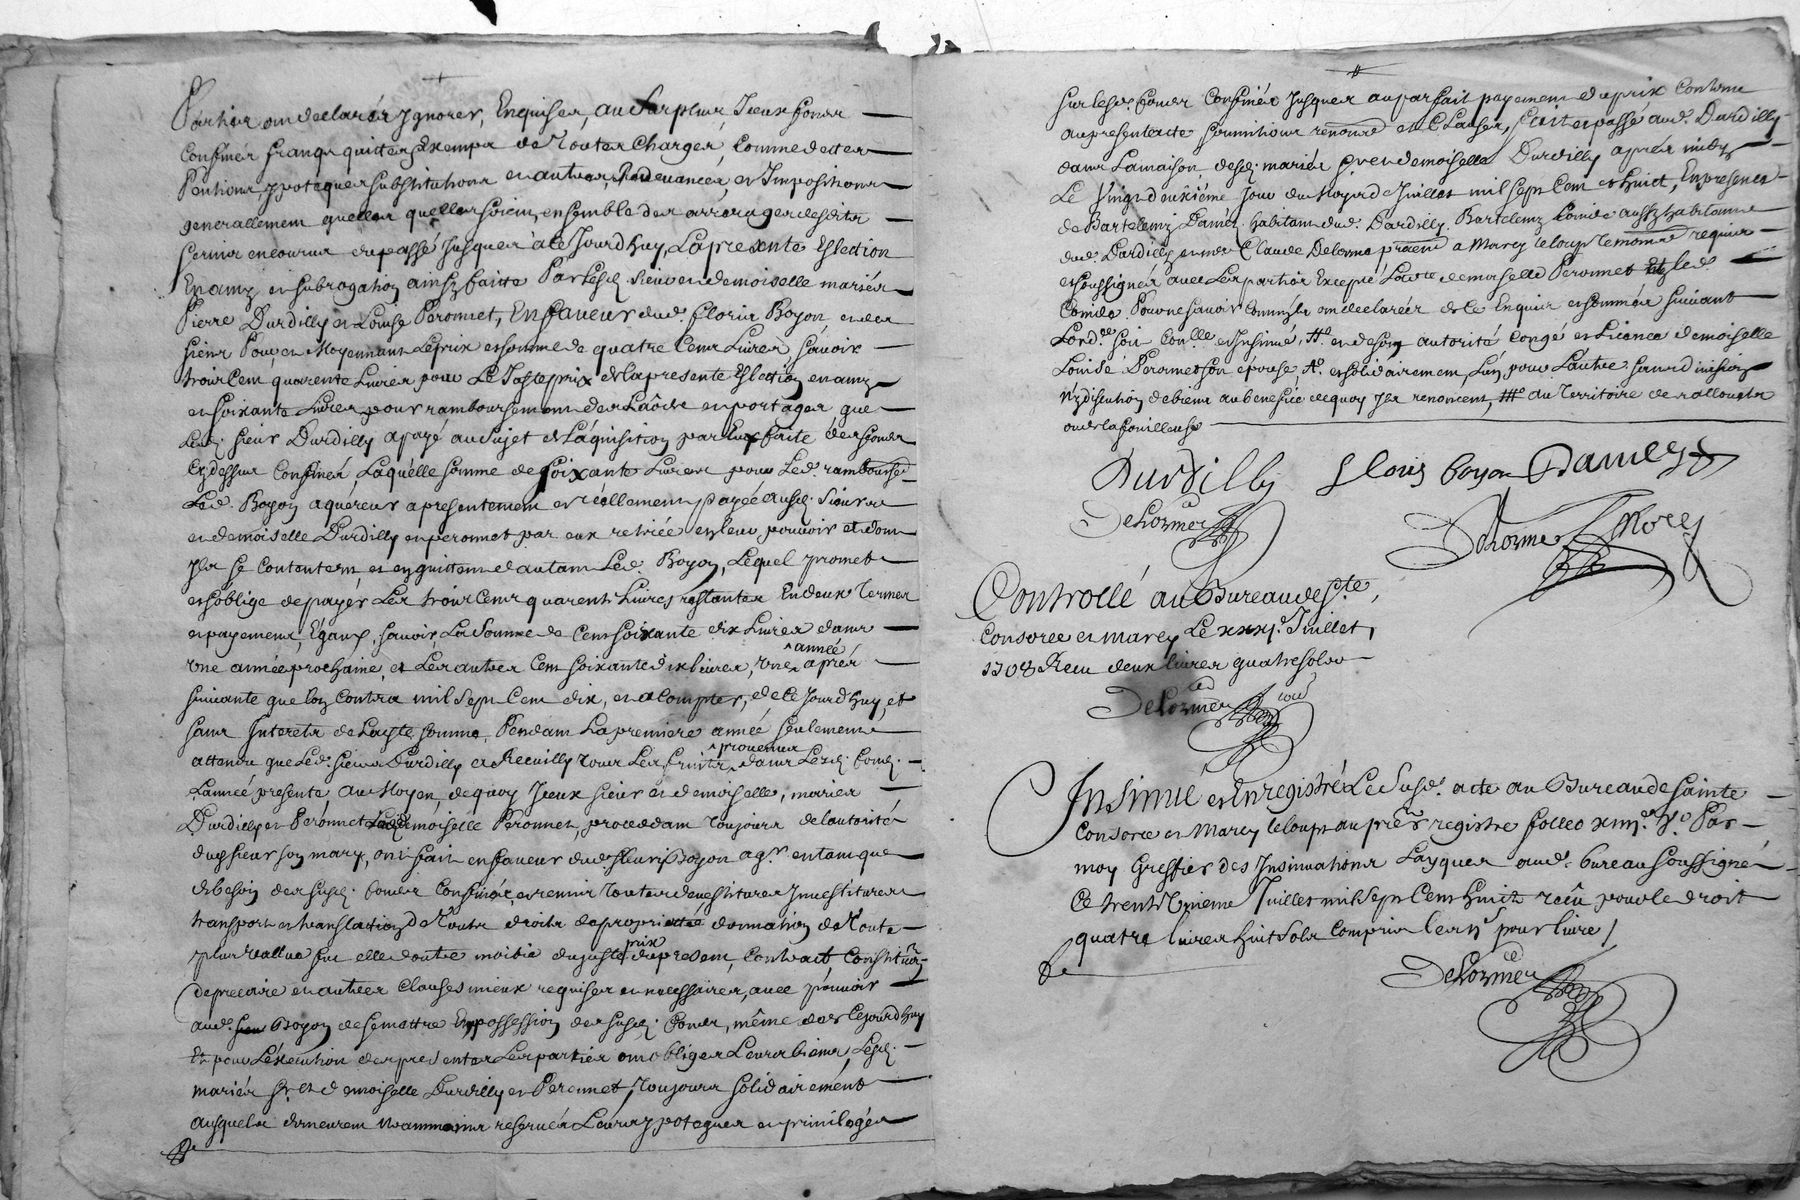 Parties ont declarés ygnorer, Enquises, au Surplus, Iceux fonds
Confinés francqs quittes Exempts de Toutes Charges, Comme dettes
Pentions ypoteques substitutions et autres Redevances, et Impositions
generallement quelles quelles soient, ensemble des arrérages desdits
servis encourus du passé Jusques à Ce Jourd'huy, La presente Eslection
En amy et subrogation ainsy faite Par Lesd. sieur et demoiselle mariés
Pierre Durdilly et Louise Peronnet, En faveur dud. fleury Boyon et des
siens Pour, et Moyennant Le prix et somme de quatre Cens Livres, sávoir
trois Cent quarente Livres pour Le Juste prix de la presente Eslection en amy
et soixante Livres pour rambourcement des Laods et portages que
Led. sieur Durdilly a payé au Sujet de Láquisition par Luy faite des fonds
Cy dessus Confinés, Laquélle somme de soixante Livres pour Led. rambourse
Led. Boyon aquereur a presentement et reéllement payée ausd. Sieur
et demoiselle Durdilly et peronnet par eux retirée et à leur pouvoir et dont
Ils se Contentent, et en quittent d'autant Led. Boyon, Lequel promet
et s'oblige de payer Les trois Cens quarente Livres restantes En deux Termes
et payemens Egaux, savoir La Somme de Cent soixante dix Livres dans
Une année prochaine, et Les autres Cent soixante dix livres, Une année aprés
suivante que l'on Contera mil sept Cent dix, et à Compter, de Ce Jourd'huy, et
sans Interets de Layte somme, Pendant La premiere année seulement
attendu que Led. sieur Durdilly a Recuilly Tous Les fruits provenus dans Lesd. fonds
L'année presente Au Moyen, de quoy Iceux sieur et demoiselle, mariés
Durdilly et Peronnet Lad. demoiselle Peronnet, procedant Toujours de l'autorité
dud. sieur son mary, ont fait en faveur dud. fleury Boyon aqr. en tant que
de besoin des susd. fonds Confinés, et remis toutes devestitures Investitures
transport et translation de Toutes droits de proprietté donnation de Toute
plus vallue fut elle d'outre moitié du juste prix du present, Contract Constitution
de precaire et autres clauses mieux requises et necessaires, avec pouvoir
aud. Boyon de se mettre En possession des susd. fonds, même dés Cejourd'huy
Et pour L'éxecution des presentes Les parties ont obligés Leurs biens, Lesd.
mariés Sr. et demoiselle Durdilly et Peronnet, Toujours solidairement
ausquels demeurent néammoins reservés Leurs ypoteques et privileges
sur lesd. fonds Confinés Jusques au parfait payement du prix Contenu
au present acte soumitions renonce et Clauses, fait et passé aud. Dardilly
dans La maison desd. mariés Sr. et demoiselle Durdilly aprés midy
Le Vingt deuxiéme Jour du Moys de Juillet mil sept Cent et huict, En presence
de Bartelemy Damés habitant dud. Dardilly Bartelemy Comde aussy habitant
dud. Dardilly et mre Claude Delorme praticien a Marcy le loup temoins requis
et soussignés avec Les parties Excepté Ladte demoiselle Peronnet Et led.
Comde Pour ne savoir Comm'ils ont declarés de Ce Enquis et sommés suivant
Lordce. soit Conllé. et Insinué, #. et de son autorité Congé et Licence demoiselle
Louise Peronnet son épouse, #. et solidairement, L'un pour L'autre sans division
N'y discution de biens au benefice de quoy Ils renoncent, ### au Territoire de rallouste
ou de la fouilleuse
Durdilly fleuis boyon Damés
Delorme
Delorme
Controllé au Bureau de Ste.
Consorce et Marcy Le xxxie. Juillet,
1708 Receu deux livres quatre sols
Delorme
Insinué et Enregistré Le Susd. acte au Bureau de Sainte
Consorce et Marcy le loup au premier registre folleo xiiii. Vo. Par
moy Greffier des Insinuations Layques aud. bureau soussigné
Ce trente unieme Juillet mil sept Cens huict receu pour le droit
quatre livres huit sols Compris les ii s pour livre /
Delorme